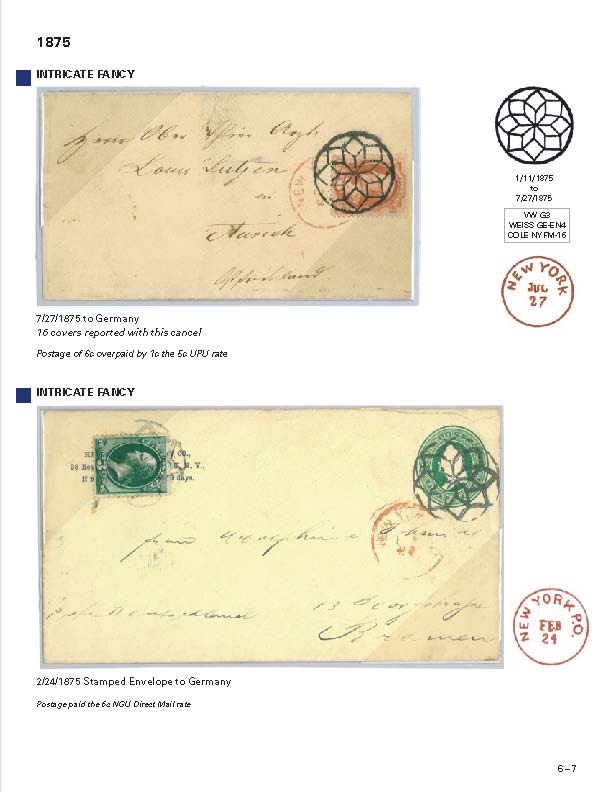 1875
INTRICATE FANCY
Herrn Ober
Louis
in
Aurich
NEW
1/11/1875
to
7/27/1875
VW G3
WEISS GE-EN4
COLE NYFM-15
NEW YORK
JUL
27
7/27/1875 to Germany
16 covers reported with this cancel
Postage of 6c overpaid by 1c the 5c UPU rate
INTRICATE FANCY
CO.,
N. Y.,
days.
Bremen
NEW YORK P.O.
FEB
24
2/24/1875 Stamped Envelope to Germany
Postage paid the 6c NGU Direct Mail rate
6–7